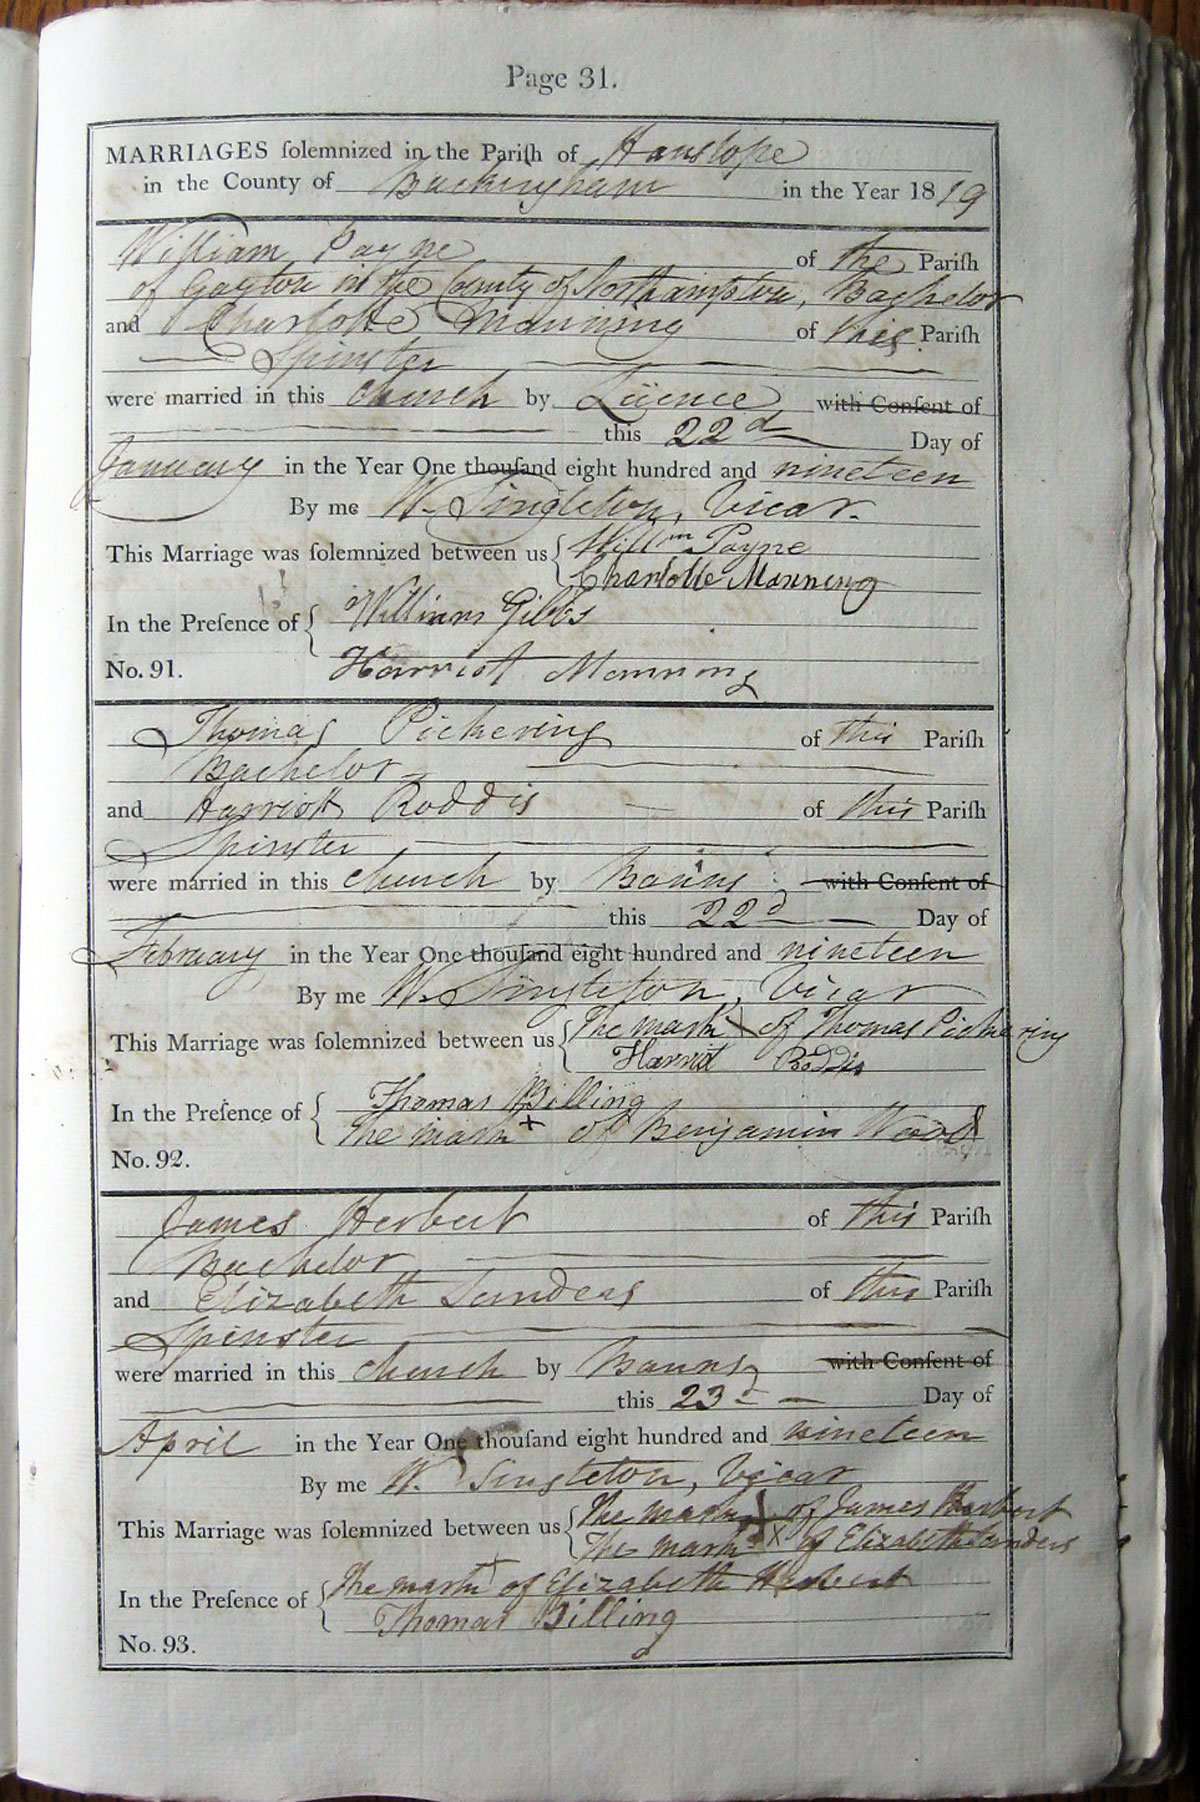 Page 31.
MARRIAGES ſolemnized in the Pariſh of Hanslope
in the County of Buckingham in the Year 1819
William Payne of the Pariſh
of Gayton in the County of Northampton, Bachelor
and Charlotte Manning of this Pariſh
Spinster
were married in this church by Licence with Conſent of
this 22d Day of
January in the Year One thouſand eight hundred and nineteen
By me W. Singleton, Vicar.
This Marriage was ſolemnized between us { Willm Payne
Charlotte Manning
In the Preſence of { William Gibbs
Harriot Manning
No. 91.
Thomas Pickering of this Pariſh
Bachelor
and Harriott Roddis of this Pariſh
Spinster
were married in this church by Banns with Conſent of
this 22d Day of
February in the Year One thouſand eight hundred and nineteen
By me W. Singleton, Vicar
This Marriage was ſolemnized between us { The mark X of Thomas Pickering
Harriot Roddis
In the Preſence of { Thomas Billing
The mark + of Benjamin Wood
No. 92.
James Herbert of this Pariſh
Bachelor
and Elizabeth Sanders of this Pariſh
Spinster
were married in this church by Banns with Conſent of
this 23d Day of
April in the Year One thouſand eight hundred and nineteen
By me W. Singleton, Vicar
This Marriage was ſolemnized between us { The mark X of James Herbert
The mark X of Elizabeth Sanders
In the Preſence of { The mark + of Elizabeth Herbert
Thomas Billing
No. 93.